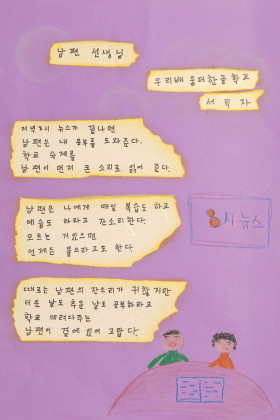 남편 선생님
우리배움터한글학교
서묵자
저녁 8시 뉴스가 끝나면
남편은 내 공부를 도와준다.
학교 숙제를
남편이 먼저 큰 소리로 읽어 준다.
남편은 나에게 매일 복습도 하고
예습도 하라고 잔소리한다.
모르는 거 있으면
언제든 물으라고도 한다.
때로는 남편의 잔소리가 귀찮지만
더운 날도 추운 날도 공부하라고
학교 데려다주는
남편이 곁에 있어 고맙다.
8시 뉴스